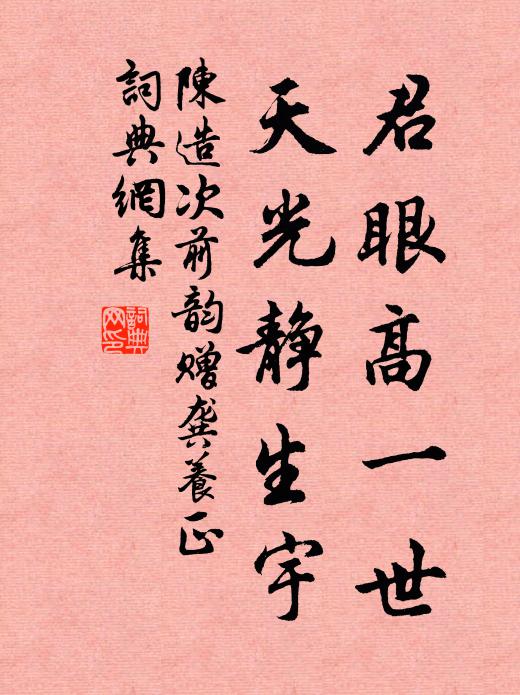 君眼高一世
天光静生宇
陳造次前韵赠龚養正
詞典網集
詞典网印